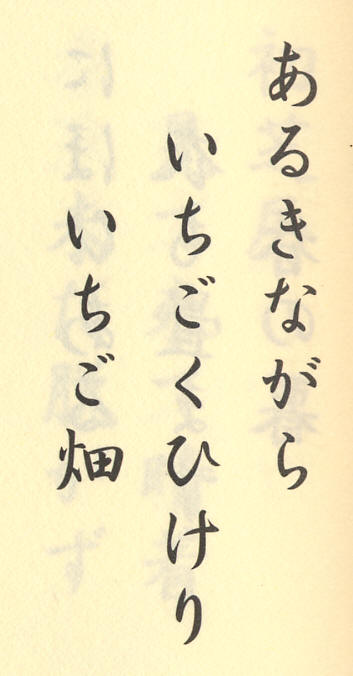 あるきながら
いちごくひけり
いちご畑